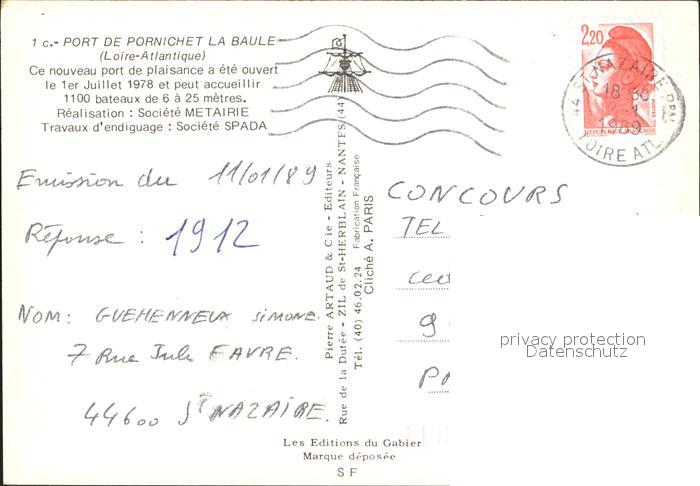 1 c.- PORT DE PORNICHET LA BAULE
(Loire-Atlantique)
Ce nouveau port de plaisance a été ouvert
le 1er Juillet 1978 et peut accueillir
1100 bateaux de 6 à 25 mètres.
Réalisation : Société METAIRIE
Travaux d'endiguage : Société SPADA
Emission du 11/01/89
Réponse : 1912
NOM: GUEHENNEUX Simone.
7 Rue Jules FAVRE.
44600 St NAZAIRE.
Pierre ARTAUD & Cie - Editeurs
Rue de la Dutée - ZIL de St-HERBLAIN - NANTES (44)
Tél. (40) 46.02.24 Fabrication Française
Cliché A. PARIS
2,20
REPUBLIQUE FRANÇAISE
POSTES
44 ST NAZAIRE PPAL
18 H
1989
LOIRE ATL.
CONCOURS
TEL
Ced
9
PA
privacy protection
Datenschutz
Les Editions du Gabier
Marque déposée
S F